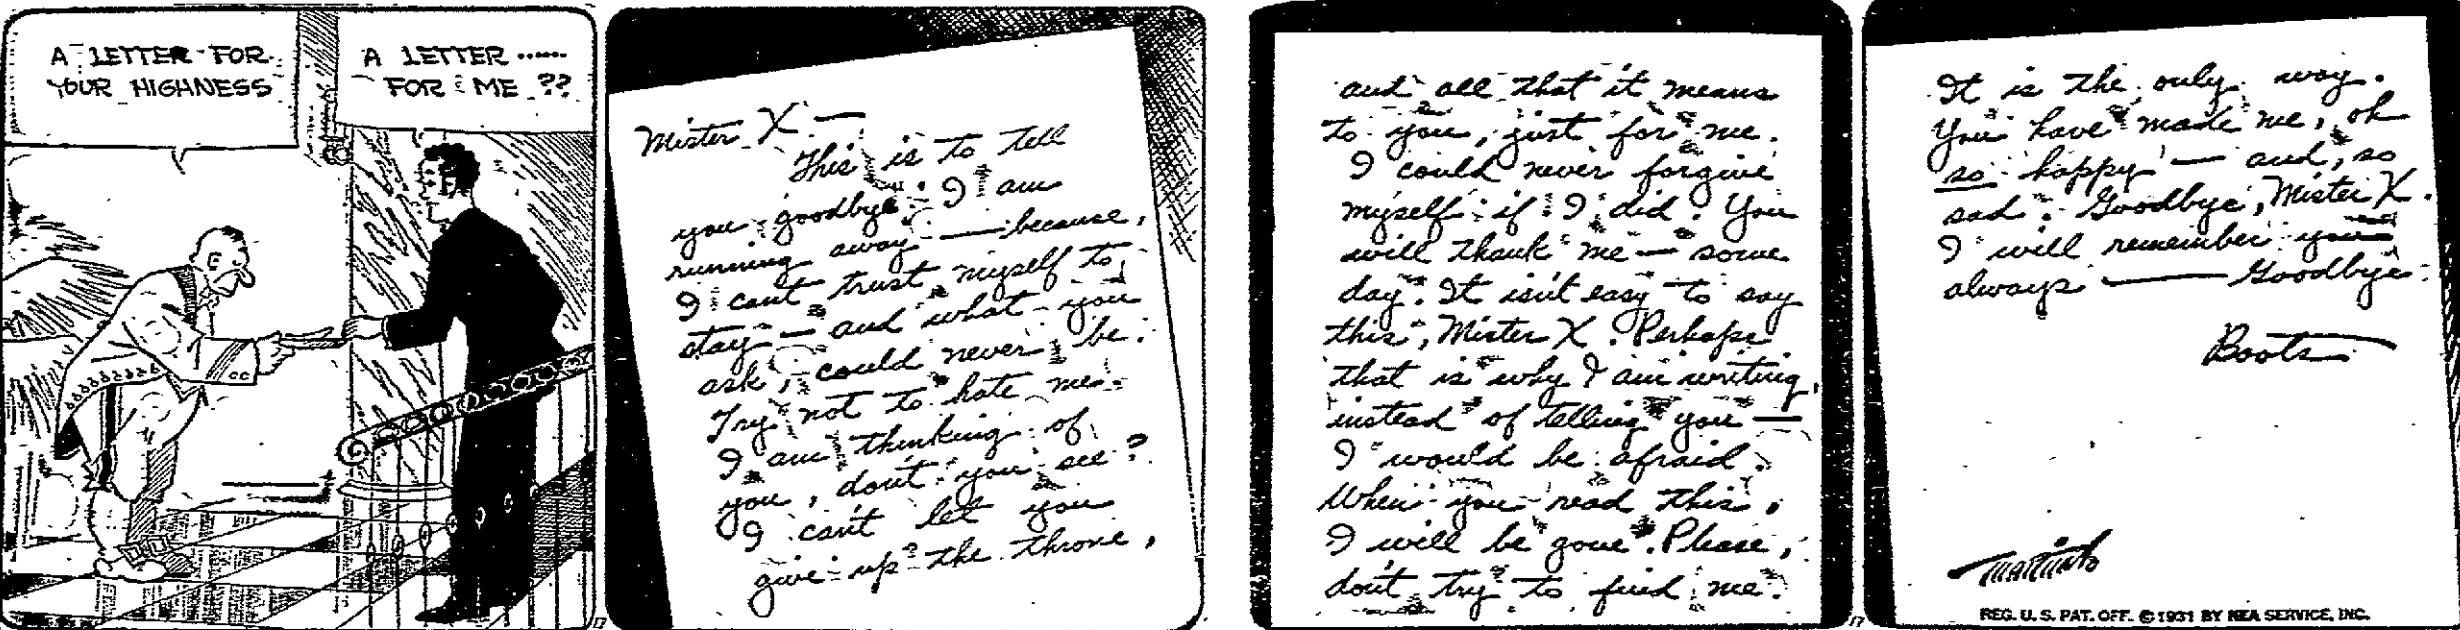 A LETTER FOR
YOUR HIGHNESS
A LETTER ......
FOR ME ??
Mister X —
This is to tell
you goodbye. I am
running away — because,
I can't trust myself to
stay — and what you
ask, could never be.
Try not to hate me.
I am thinking of
you, don't you see?
I can't let you
give up the throne,
and all that it means
to you, just for me.
I could never forgive
myself if I did. You
will thank me — some
day. It isn't easy to say
this, Mister X. Perhaps
that is why I am writing,
instead of telling you —
I would be afraid.
When you read this,
I will be gone. Please,
don't try to find me.
It is the only way.
You have made me, oh
so happy — and, so
sad. Goodbye, Mister X.
I will remember you
always — Goodbye
Boots
MARTIN
REG. U. S. PAT. OFF. © 1931 BY NEA SERVICE, INC.